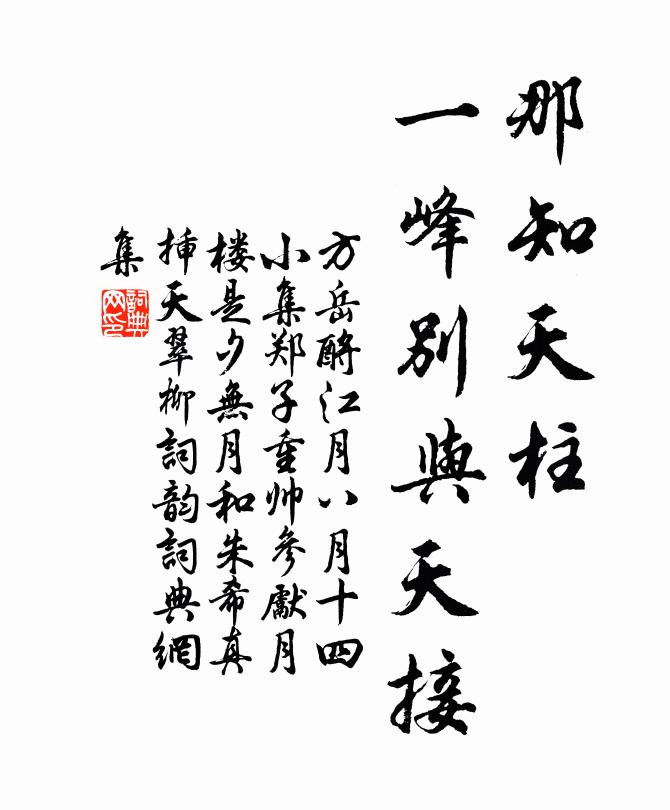 那知天柱
一峰別與天接
方岳酹江月八月十四
小集郑子重帅參獻月
楼是夕無月和朱希真
挿天翠柳詞韵詞典網
集
詞典網印